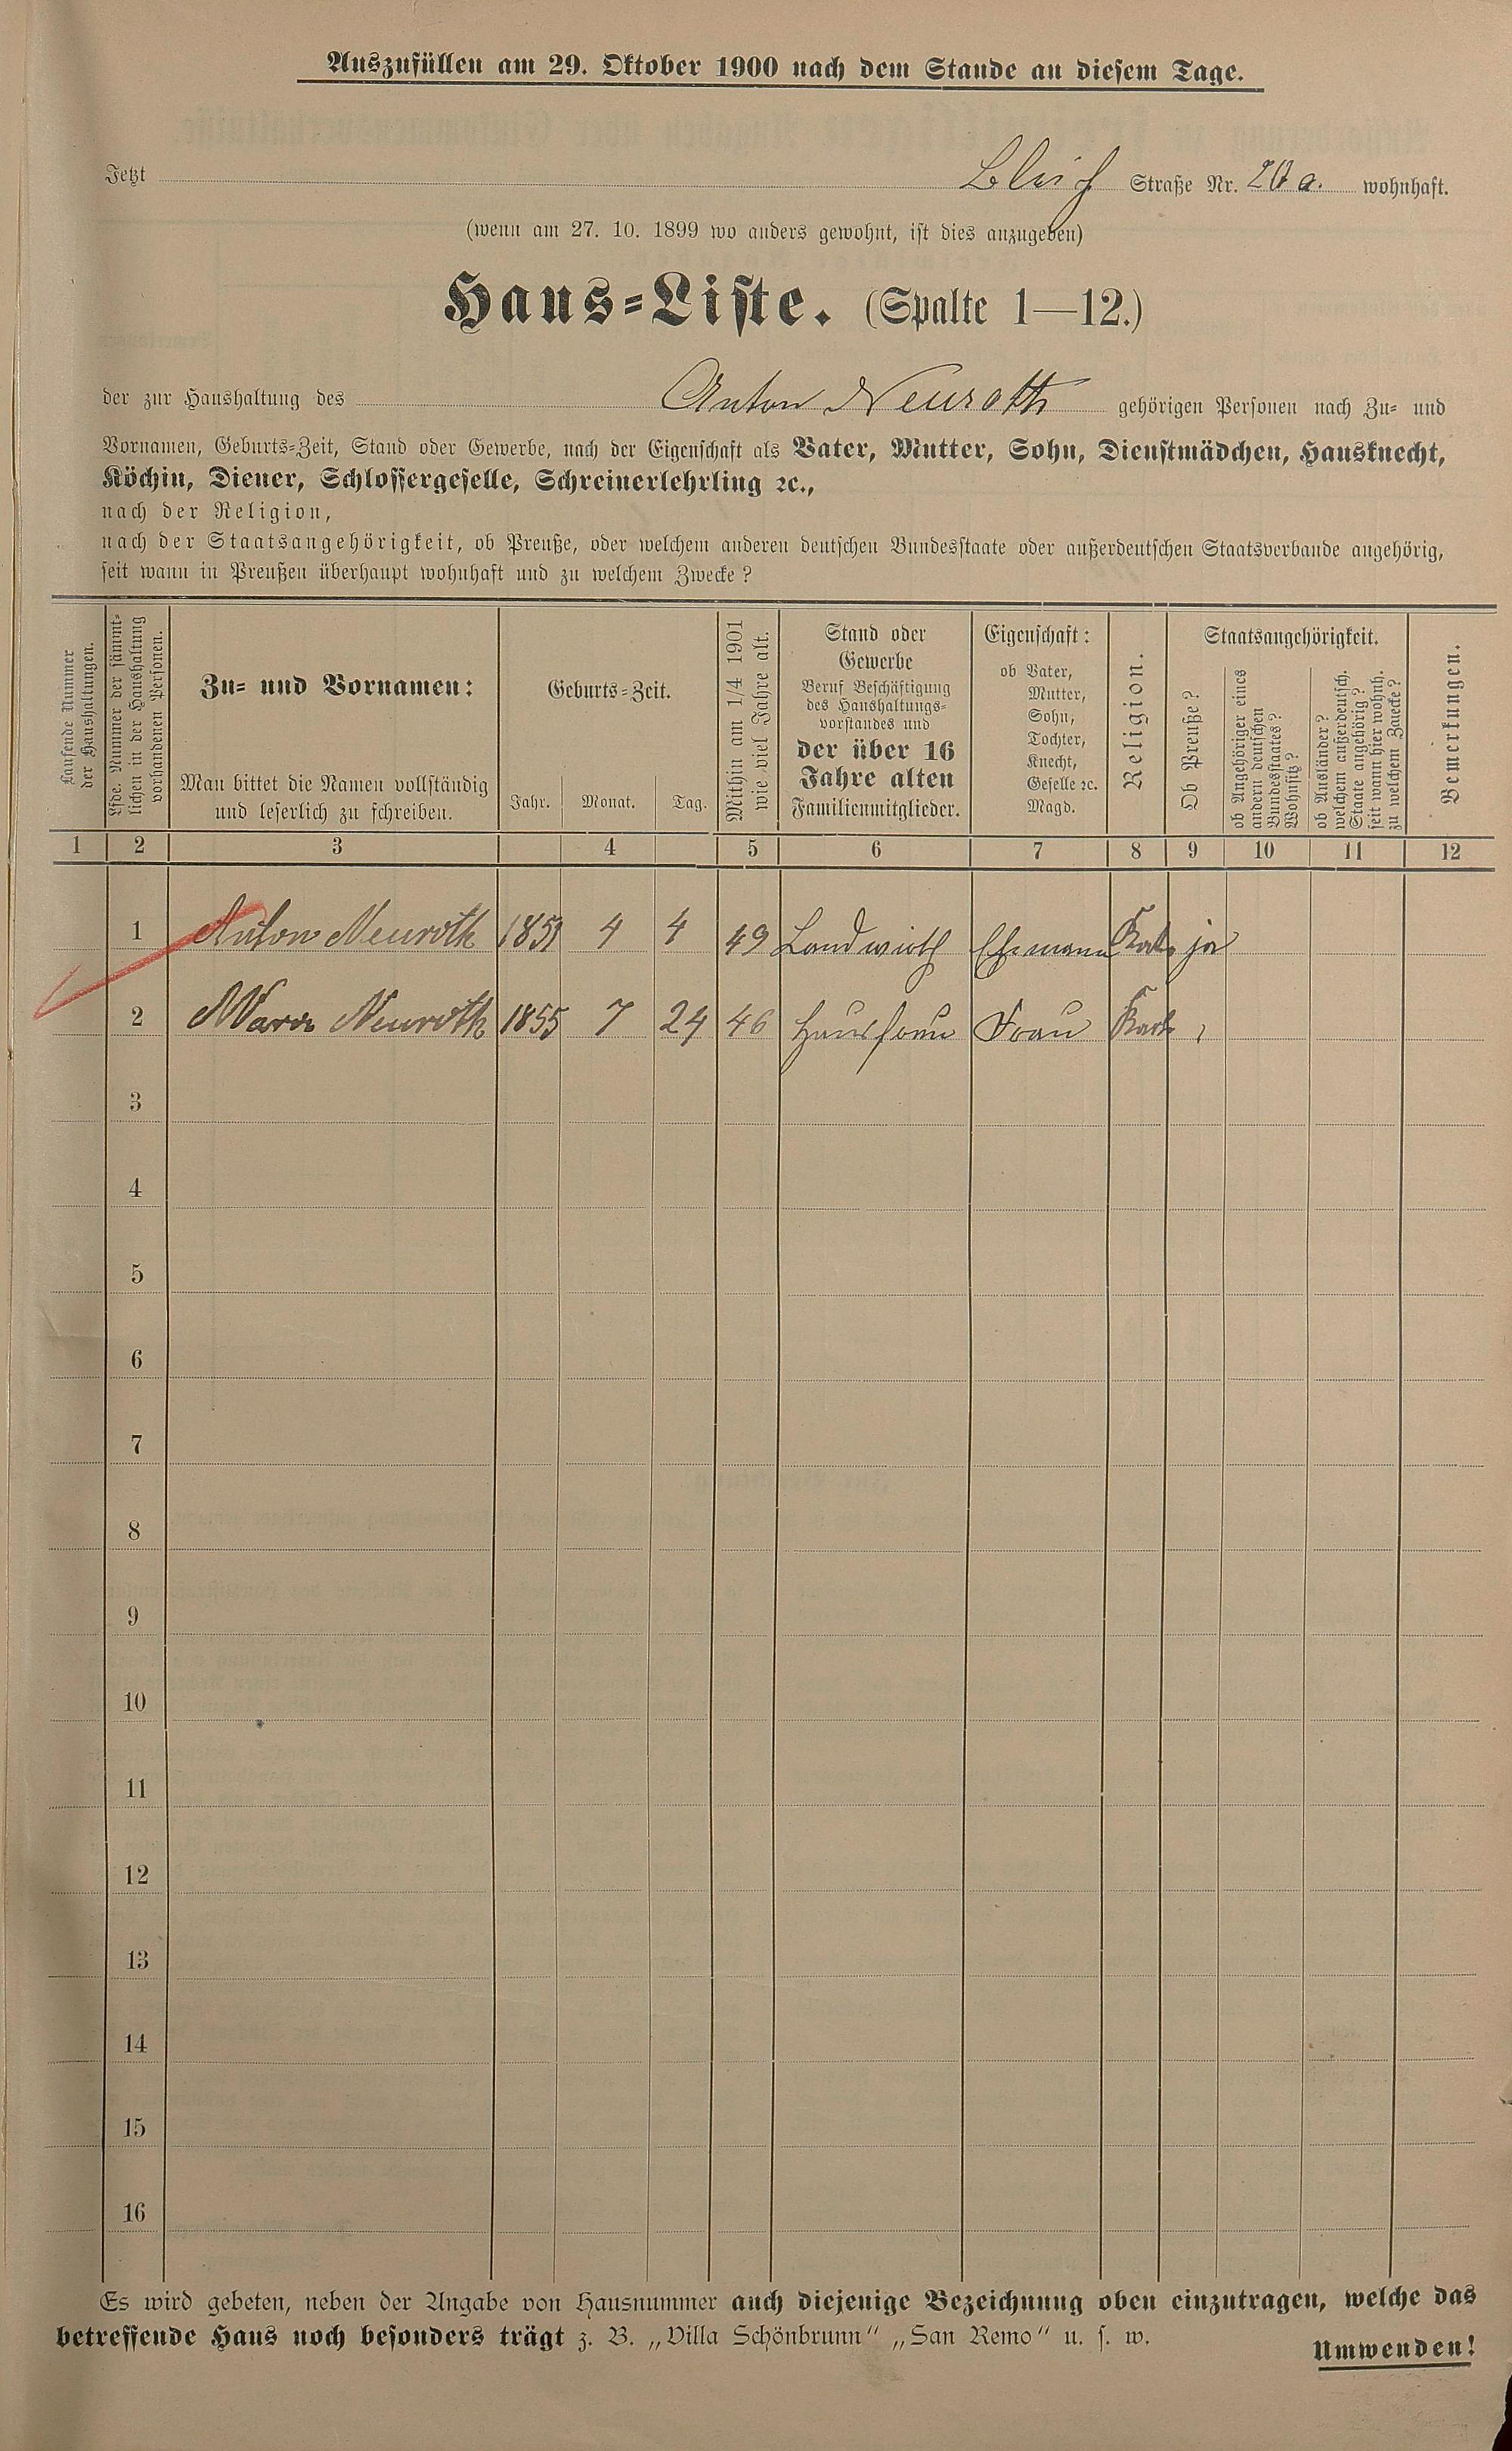 Auszufüllen am 29. Oktober 1900 nach dem Stande an diesem Tage.
Jetzt Straße Nr. 20 a. wohnhaft.
(wenn am 27. 10. 1899 wo anders gewohnt, ist dies anzugeben)
Haus-Liste. (Spalte 1—12.)
der zur Haushaltung des Anton Neuroth gehörigen Personen nach Zu- und
Vornamen, Geburts-Zeit, Stand oder Gewerbe, nach der Eigenschaft als Vater, Mutter, Sohn, Dienstmädchen, Hausknecht,
Köchin, Diener, Schlossergeselle, Schreinerlehrling ꝛc.,
nach der Religion,
nach der Staatsangehörigkeit, ob Preuße, oder welchem anderen deutschen Bundesstaate oder außerdeutschen Staatsverbande angehörig,
seit wann in Preußen überhaupt wohnhaft und zu welchem Zwecke?
Laufende Nummer
der Haushaltungen.
Lfde. Nummer der sämmt-
lichen in der Haushaltung
vorhandenen Personen.
Zu- und Vornamen:
Man bittet die Namen vollständig
und leserlich zu schreiben.
Geburts-Zeit.
Jahr. Monat. Tag.
Mithin am 1/4 1901
wie viel Jahre alt.
Stand oder
Gewerbe
Beruf Beschäftigung
des Haushaltungs-
vorstandes und
der über 16
Jahre alten
Familienmitglieder.
Eigenschaft:
ob Vater,
Mutter,
Sohn,
Tochter,
Knecht,
Geselle ꝛc.
Magd.
Religion.
Staatsangehörigkeit.
Ob Preuße?
ob Angehöriger eines
andern deutschen
Bundesstaates?
Wohnsitz?
ob Ausländer?
welchem außerdeutsch.
Staate angehörig?
seit wann hier wohnh.
zu welchem Zwecke?
Bemerkungen.
1 2 3 4 5 6 7 8 9 10 11 12
1 Anton Neuroth 1851 4 4 49 Landwirth Ehemann Kath ja
2 Neuroth 1855 7 24 46 Hausfrau Frau Kath
3
4
5
6
7
8
9
10
11
12
13
14
15
16
Es wird gebeten, neben der Angabe von Hausnummer auch diejenige Bezeichnung oben einzutragen, welche das
betreffende Haus noch besonders trägt z. B. „Villa Schönbrunn“ „San Remo“ u. s. w.
Umwenden!